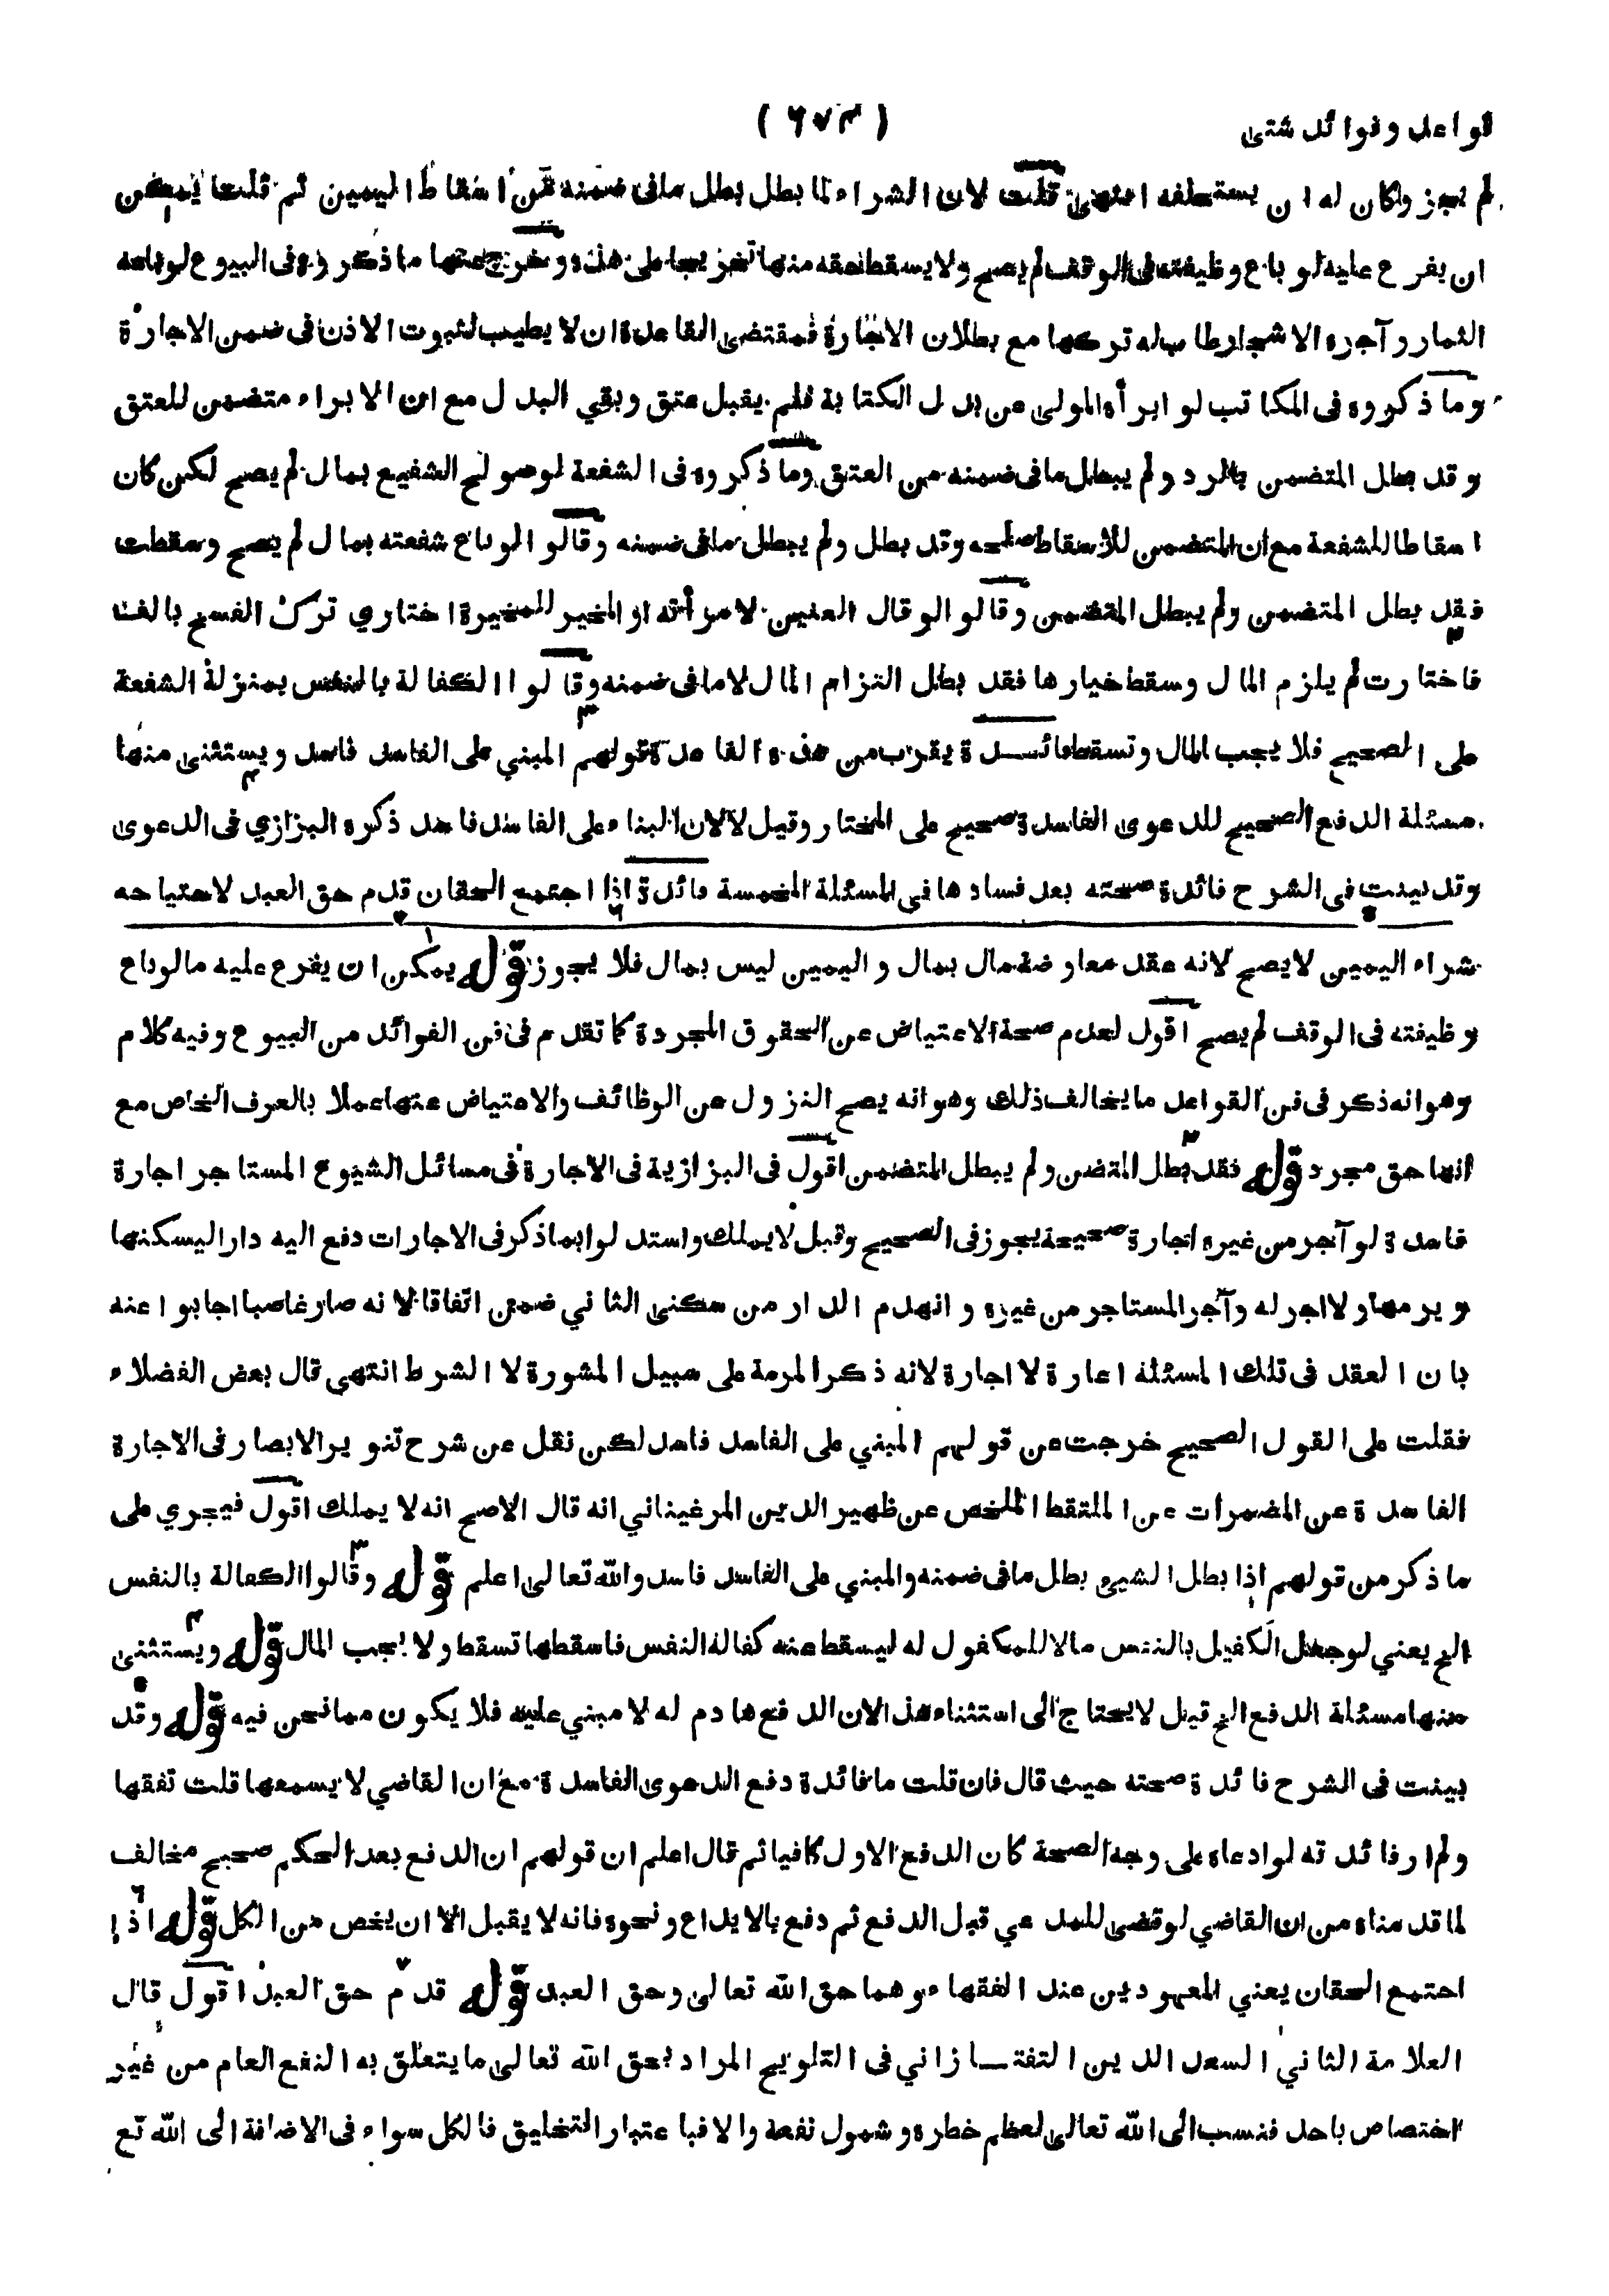 قواعد وفوائد شتى (٦٧٣)
لم يجز وكان له ان يستحلفه انتهى قلت لان الشراء لما بطل بطل ما فى ضمنه من اسقاط اليمين ثم قلت يمكن
ان يفرع عليه لو باع وظيفته فى الوقف لم يصح ولا يسقط حقه منها تخريجا على هذه وخرج عنها ما ذكروه فى البيوع لو باعه
الثمار وآجره الاشجار طاب له تركها مع بطلان الاجارة فمقتضى القاعدة ان لا يطيب لثبوت الاذن فى ضمن الاجارة
وما ذكروه فى المكاتب لو ابرأه المولى عن بدل الكتابة فلم يقبل عتق وبقي البدل مع ان الابراء متضمن للعتق
وقد بطل المتضمن بالرد ولم يبطل ما فى ضمنه من العتق وما ذكروه فى الشفعة لو صولح الشفيع بمال لم يصح لكن كان
اسقاطا للشفعة مع ان المتضمن للاسقاط صلحه وقد بطل ولم يبطل ما فى ضمنه وقالوا لو باع شفعته بمال لم يصح وسقطت
فقد بطل المتضمن ولم يبطل المتضمن وقالوا لو قال العنين لامرأته او المخير للمخيرة اختاري ترك الفسخ بالف
فاختارت لم يلزم المال وسقط خيارها فقد بطل التزام المال لا ما فى ضمنه وقالوا الكفالة بالنفس بمنزلة الشفعة
على الصحيح فلا يجب المال وتسقط فائدة يقرب من هذه القاعدة قولهم المبني على الفاسد فاسد ويستثنى منها
مسئلة الدفع الصحيح للدعوى الفاسدة صحيح على المختار وقيل لا لان البناء على الفاسد فاسد ذكره البزازي فى الدعوى
وقد بينت فى الشرح فائدة صحته بعد فسادها فى المسئلة المخمسة فائدة اذا اجتمع الحقان قدم حق العبد لاحتياجه
شراء اليمين لا يصح لانه عقد معاوضة مال بمال واليمين ليس بمال فلا يجوز قوله يمكن ان يفرع عليه ما لو باع
وظيفته فى الوقف لم يصح اقول لعدم صحة الاعتياض عن الحقوق المجردة كما تقدم فى فن الفوائد من البيوع وفيه كلام
وهو انه ذكر فى فن القواعد ما يخالف ذلك وهو انه يصح النزول عن الوظائف والاعتياض عنها عملا بالعرف الخاص مع
انها حق مجرد قوله فقد بطل المتضمن ولم يبطل المتضمن اقول فى البزازية فى الاجارة فى مسائل الشيوع المستاجر اجارة
فاسدة لو آجر من غيره اجارة صحيحة يجوز فى الصحيح وقيل لا يملك واستدلوا بما ذكر فى الاجارات دفع اليه دارا ليسكنها
ويرمها ولا اجر له وآجر المستاجر من غيره وانهدم الدار من سكنى الثاني ضمن اتفاقا لانه صار غاصبا اجابوا عنه
بان العقد فى تلك المسئلة اعارة لا اجارة لانه ذكر المرمة على سبيل المشورة لا الشرط انتهى قال بعض الفضلاء
فقلت على القول الصحيح خرجت عن قولهم المبني على الفاسد فاسد لكن نقل عن شرح تنوير الابصار فى الاجارة
الفاسدة عن المضمرات عن الملتقط الملخص عن ظهير الدين المرغيناني انه قال الاصح انه لا يملك اقول فيجري على
ما ذكر من قولهم اذا بطل الشيئ بطل ما فى ضمنه والمبني على الفاسد فاسد والله تعالى اعلم قوله وقالوا الكفالة بالنفس
الخ يعني لو جعل الكفيل بالنفس مالا للمكفول له ليسقط عنه كفالة النفس فاسقطها تسقط ولا يجب المال قوله ويستثنى
منها مسئلة الدفع الخ قيل لا يحتاج الى استثناء هذا لان الدفع هادم له لا مبني عليه فلا يكون مما نحن فيه قوله وقد
بينت فى الشرح فائدة صحته حيث قال فان قلت ما فائدة دفع الدعوى الفاسدة مع ان القاضي لا يسمعها قلت تفقها
ولم ار فائدته لو ادعاه على وجه الصحة كان الدفع الاول كافيا ثم قال اعلم ان قولهم ان الدفع بعد الحكم صحيح مخالف
لما قدمناه من ان القاضي لو قضى للمدعي قبل الدفع ثم دفع بالايداع ونحوه فانه لا يقبل الا ان يخص من الكل قوله اذا
اجتمع الحقان يعني المعهودين عند الفقهاء وهما حق الله تعالى وحق العبد قوله قدم حق العبد اقول قال
العلامة الثاني السعد الدين التفتازاني فى التلويح المراد بحق الله تعالى ما يتعلق به النفع العام من غير
اختصاص باحد فنسب الى الله تعالى لعظم خطره وشمول نفعه والا فباعتبار التخليق فالكل سواء فى الاضافة الى الله تع